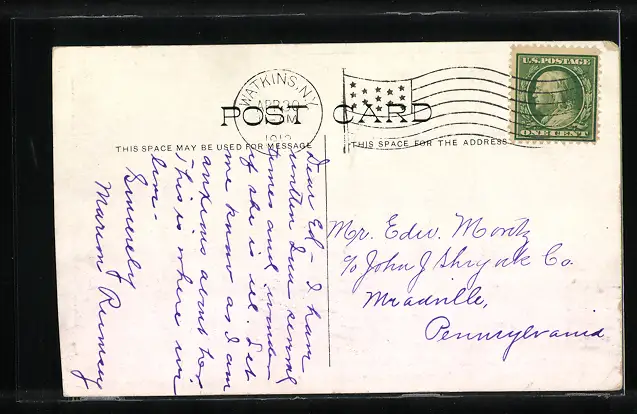 WATKINS, N.Y.
APR 30
PM
1912
U.S. POSTAGE
ONE CENT
POST CARD
THIS SPACE MAY BE USED FOR MESSAGE
THIS SPACE FOR THE ADDRESS
Dear Ed - I have
written Dua several
times and wonder
if she is ill. Let
me know as I am
anxious about her.
This is where we
live -
Sincerely
Marion Rumsey
Mr. Edw. Moritz
c/o John J Shryock Co.
Meadville,
Pennsylvania